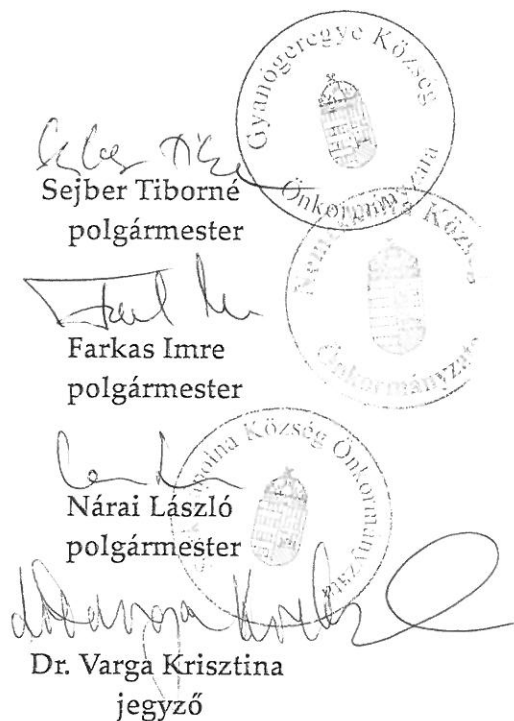 Gyanógeregye Község
Önkormányzata
Sejber Tiborné
polgármester
Község
Önkormányzata
Farkas Imre
polgármester
Község Önkormányzata
Nárai László
polgármester
Dr. Varga Krisztina
jegyző